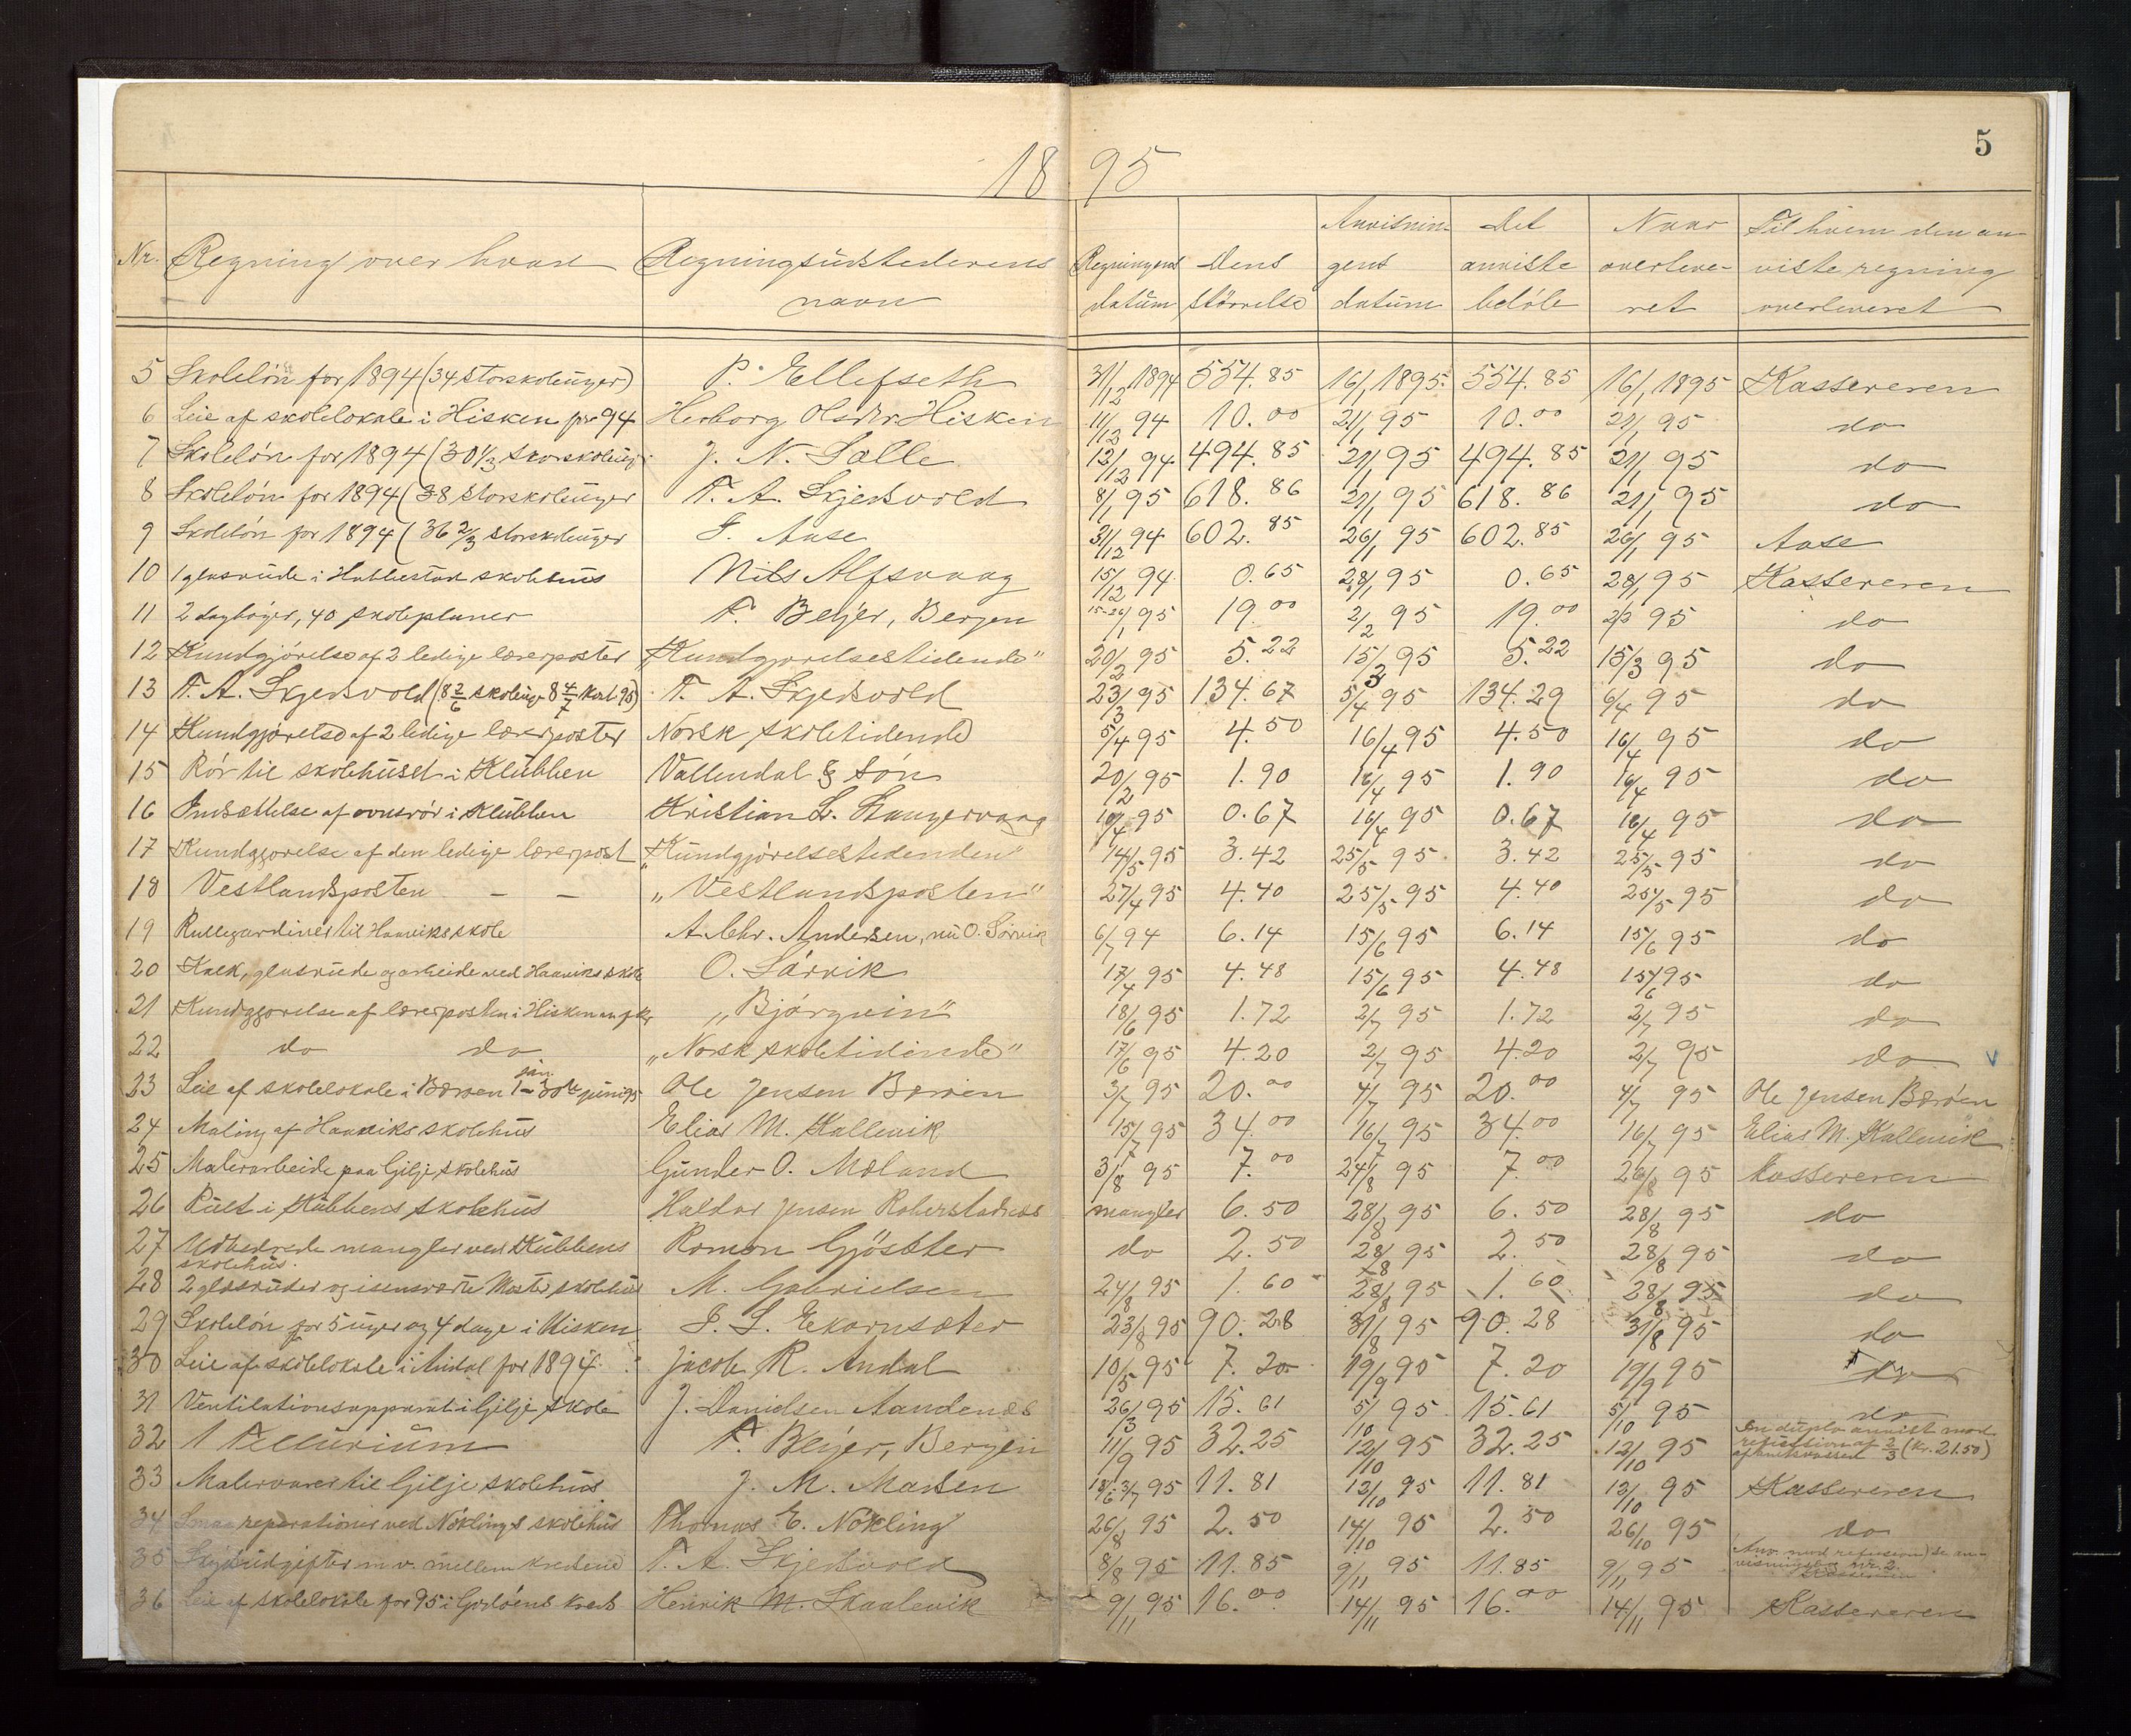 5
18 95
Nr. Regning over hvad Regningsudstederens navn Regningens datum Dens størrelse Anvisningens datum Det anviste beløb Naar overleveret Til hvem den anviste regning overleveret
5 Skoleløn for 1894 (34 storskoleuger) P. Ellefseth 31/12 1894 554.85 16/1 1895. 554.85 16/1 1895 Kassereren
6 Leie af skolelokale i Hisken pro 94 Herborg Olsdtr Hisken 11/12 94 10.00 21/1 95 10.00 21/1 95 do
7 Skoleløn for 1894 (30 1/3 storskoleug. J. N. Salle 12/12 94 494.85 21/1 95 494.85 21/1 95 do
8 Skoleløn for 1894 (38 storskoleuger T. A. Skjedsvold 8/1 95 618.86 21/1 95 618.86 21/1 95 do
9 Skoleløn for 1894 (36 2/3 storskoleuger I. Aase 31/12 94 602.85 26/1 95 602.85 26/1 95 Aase
10 1 glasrude i Hubbestad skolehus Nils Alfsvaag 15/12 94 0.65 28/1 95 0.65 28/1 95 Kassereren
11 2 dagbøger, 40 skoleplaner F. Beyer, Bergen 15-26/1 95 19.00 2/2 95 19.00 2/2 95 do
12 Kundgjørelse af 2 ledige lærerposter "Kundgjørelsestidende" 20/2 95 5.22 15/3 95 5.22 15/3 95 do
13 T. A. Skjedsvold (8 2/6 skoleuge 8 4/7 kost 95) T. A. Skjedsvold 23/3 95 134.67 5/4 95 134.29 6/4 95 do
14 Kundgjørelse af 2 ledige lærerposter Norsk skoletidende 5/4 95 4.50 16/4 95 4.50 16/4 95 do
15 Rør til skolehuset i Klubben Vallendal & Søn 20/2 95 1.90 16/4 95 1.90 16/4 95 do
16 Indsættelse af ovnsrør i Klubben Kristian L. Stangervaag 10/4 95 0.67 16/4 95 0.67 16/4 95 do
17 Kundgjørelse af den ledige lærerpost "Kundgjørelsestidenden" 14/5 95 3.42 25/5 95 3.42 25/5 95 do
18 Vestlandsposten — — "Vestlandsposten" 27/4 95 4.40 25/5 95 4.40 25/5 95 do
19 Rullegardiner til Haaviks skole A. Chr. Andersen, nu O. Sørvik 6/7 94 6.14 15/6 95 6.14 15/6 95 do
20 Kalk, glasrude og arbeide ved Haaviks skole O. Sørvik 17/4 95 4.48 15/6 95 4.48 15/6 95 do
21 Kundgjørelse af lærerposten i Hisken "Bjørgvin" 18/6 95 1.72 2/7 95 1.72 2/7 95 do
22 do do "Norsk skoletidende" 17/6 95 4.20 2/7 95 4.20 2/7 95 do
23 Leie af skolelokale i Børøen 1 jan. – 30te juni 95 Ole Jensen Børøen 3/7 95 20.00 4/7 95 20.00 4/7 95 Ole Jensen Børøen
24 Maling af Haaviks skolehus Elias M. Kallevik 15/7 95 34.00 16/7 95 34.00 16/7 95 Elias M. Kallevik
25 Malerarbeide paa Gilje skolehus Gunder O. Moland 3/8 95 7.00 24/8 95 7.00 26/8 95 Kassereren
26 Pult i Klubbens skolehus Haldor Jensen mangler 6.50 28/8 95 6.50 28/8 95 do
27 Udbedrede mangler ved Klubbens skolehus. Roman Gjøsæter do 2.50 28/8 95 2.50 28/8 95 do
28 2 glasruder og isensværte Moster skolehus M. Gabrielsen 24/8 95 1.60 28/8 95 1.60 28/8 95 do
29 Skoleløn for 5 uger og 4 dage i Hisken I. L. Ekornsæter 23/8 95 90.28 31/8 95 90.28 31/8 95 do
30 Leie af skolelokale i Andal for 1894 Jacob R. Andal 10/5 95 7.20 19/9 95 7.20 19/9 95 do
31 Ventilationsapparat i Gilje skole J. Danielsen Aandenæs 26/3 95 15.61 5/10 95 15.61 5/10 95 do
32 1 Tellurium F. Beyer, Bergen 11/9 95 32.25 12/10 95 32.25 12/10 95 In duplo anvist mod refusion af 2/3 (kr. 21.50) af amtskassen
33 Malervarer til Gilje skolehus J. M. Madsen 18/6-3/7 95 11.81 12/10 95 11.81 12/10 95 Kassereren
34 Smaa reparationer ved Nøklings skolehus Thomas E. Nøkling 26/8 95 2.50 14/10 95 2.50 26/10 95 do
35 Skydsudgifter m.v. mellem kredsene T. A. Skjedsvold 8/8 95 11.85 9/11 95 11.85 9/11 95 Anv. mod refusion, se anvisningsbog nr. 2. Kassereren
36 Leie af skolelokale for 95 i Goddøens kreds Henrik M. Skaalevik 9/11 95 16.00 14/11 95 16.00 14/11 95 Kassereren